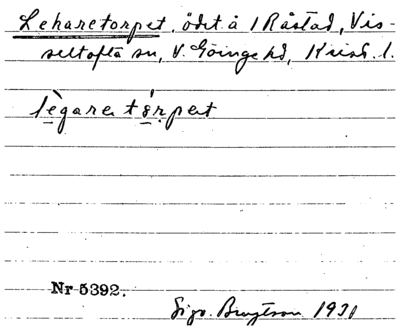 Leharetorpet, ödet å 1 Råstad, Vis-
seltofta sn, V. Göinge hd, Krist. l.
lègaretó̱rpet
Nr 5392.
Sigv. Bengtson 1931